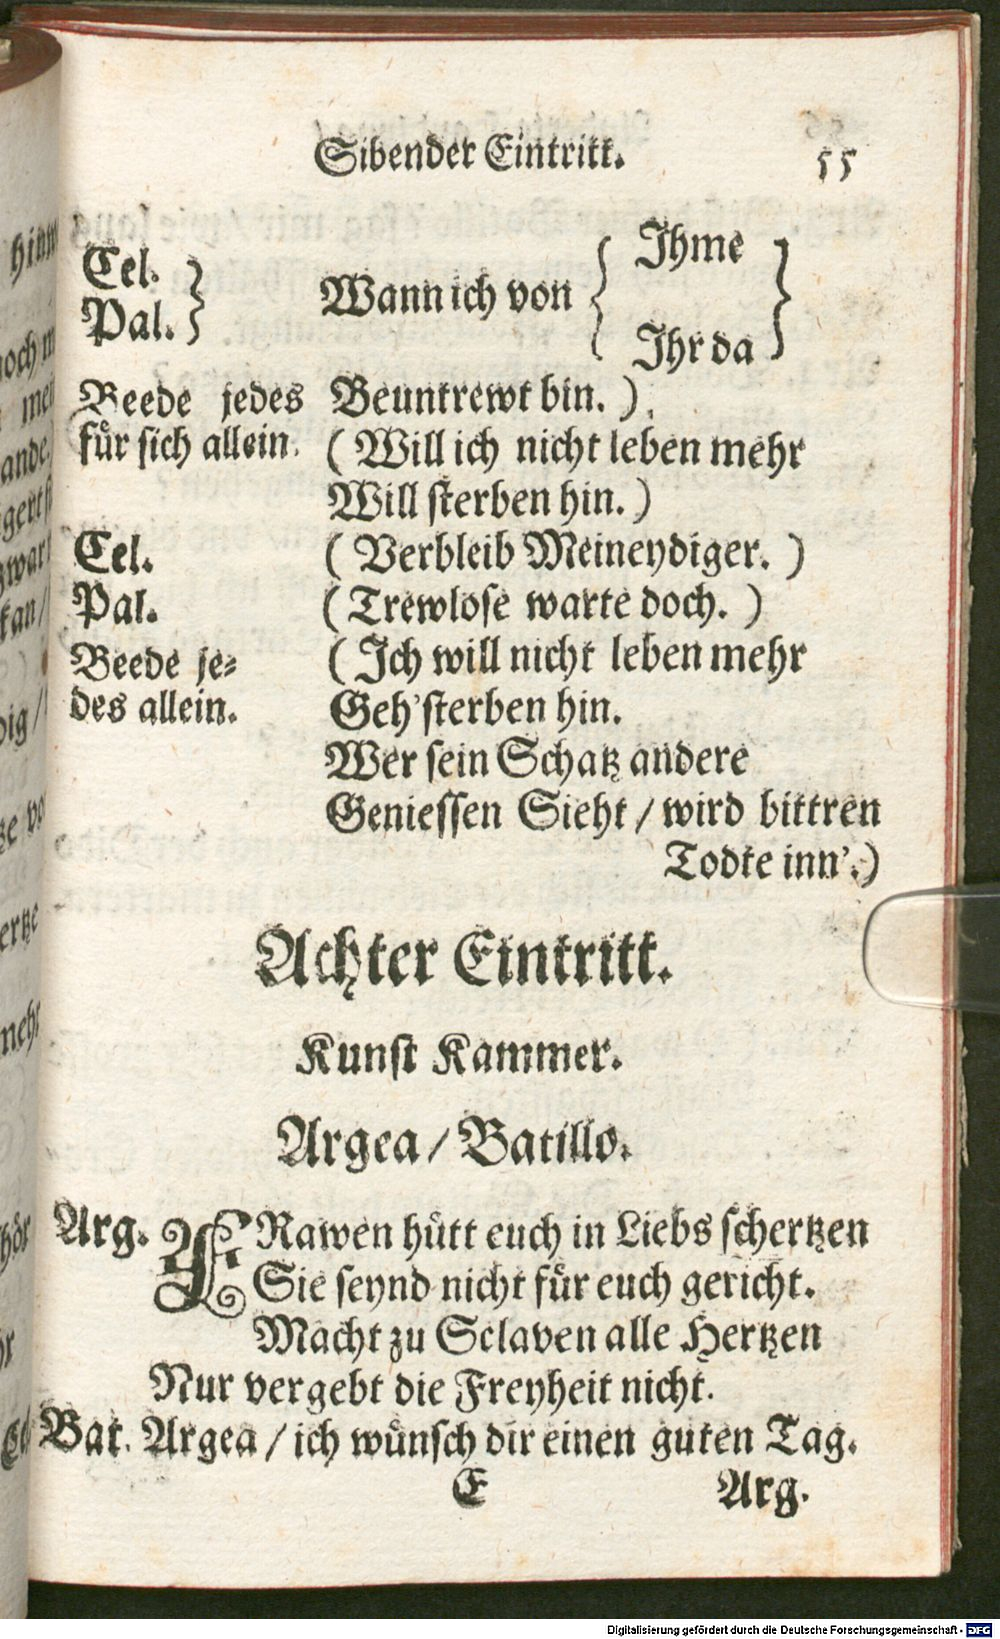 Sibender Eintritt. 55
Cel. } Wann ich von { Ihme }
Pal. } { Ihr da }
Beede jedes Beuntrewt bin. )
für sich allein. ( Will ich nicht leben mehr
Will sterben hin. )
Cel. ( Verbleib Meineydiger. )
Pal. ( Trewlose warte doch. )
Beede je- ( Ich will nicht leben mehr
des allein. Geh' sterben hin.
Wer sein Schatz andere
Geniessen Sieht / wird bittren
Todte inn'. )
Achter Eintritt.
Kunst Kammer.
Argea / Batillo.
Arg. FRawen hütt euch in Liebs schertzen
Sie seynd nicht für euch gericht.
Macht zu Sclaven alle Hertzen
Nur vergebt die Freyheit nicht.
Bat. Argea / ich wünsch dir einen guten Tag.
E Arg.
Digitalisierung gefördert durch die Deutsche Forschungsgemeinschaft - DFG